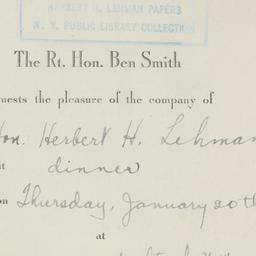 HERBERT H. LEHMAN PAPERS
N. Y. PUBLIC LIBRARY COLLECTION
The Rt. Hon. Ben Smith
uests the pleasure of the company of
on. Herbert H. Lehman
at dinner
on Thursday, January 20th
at